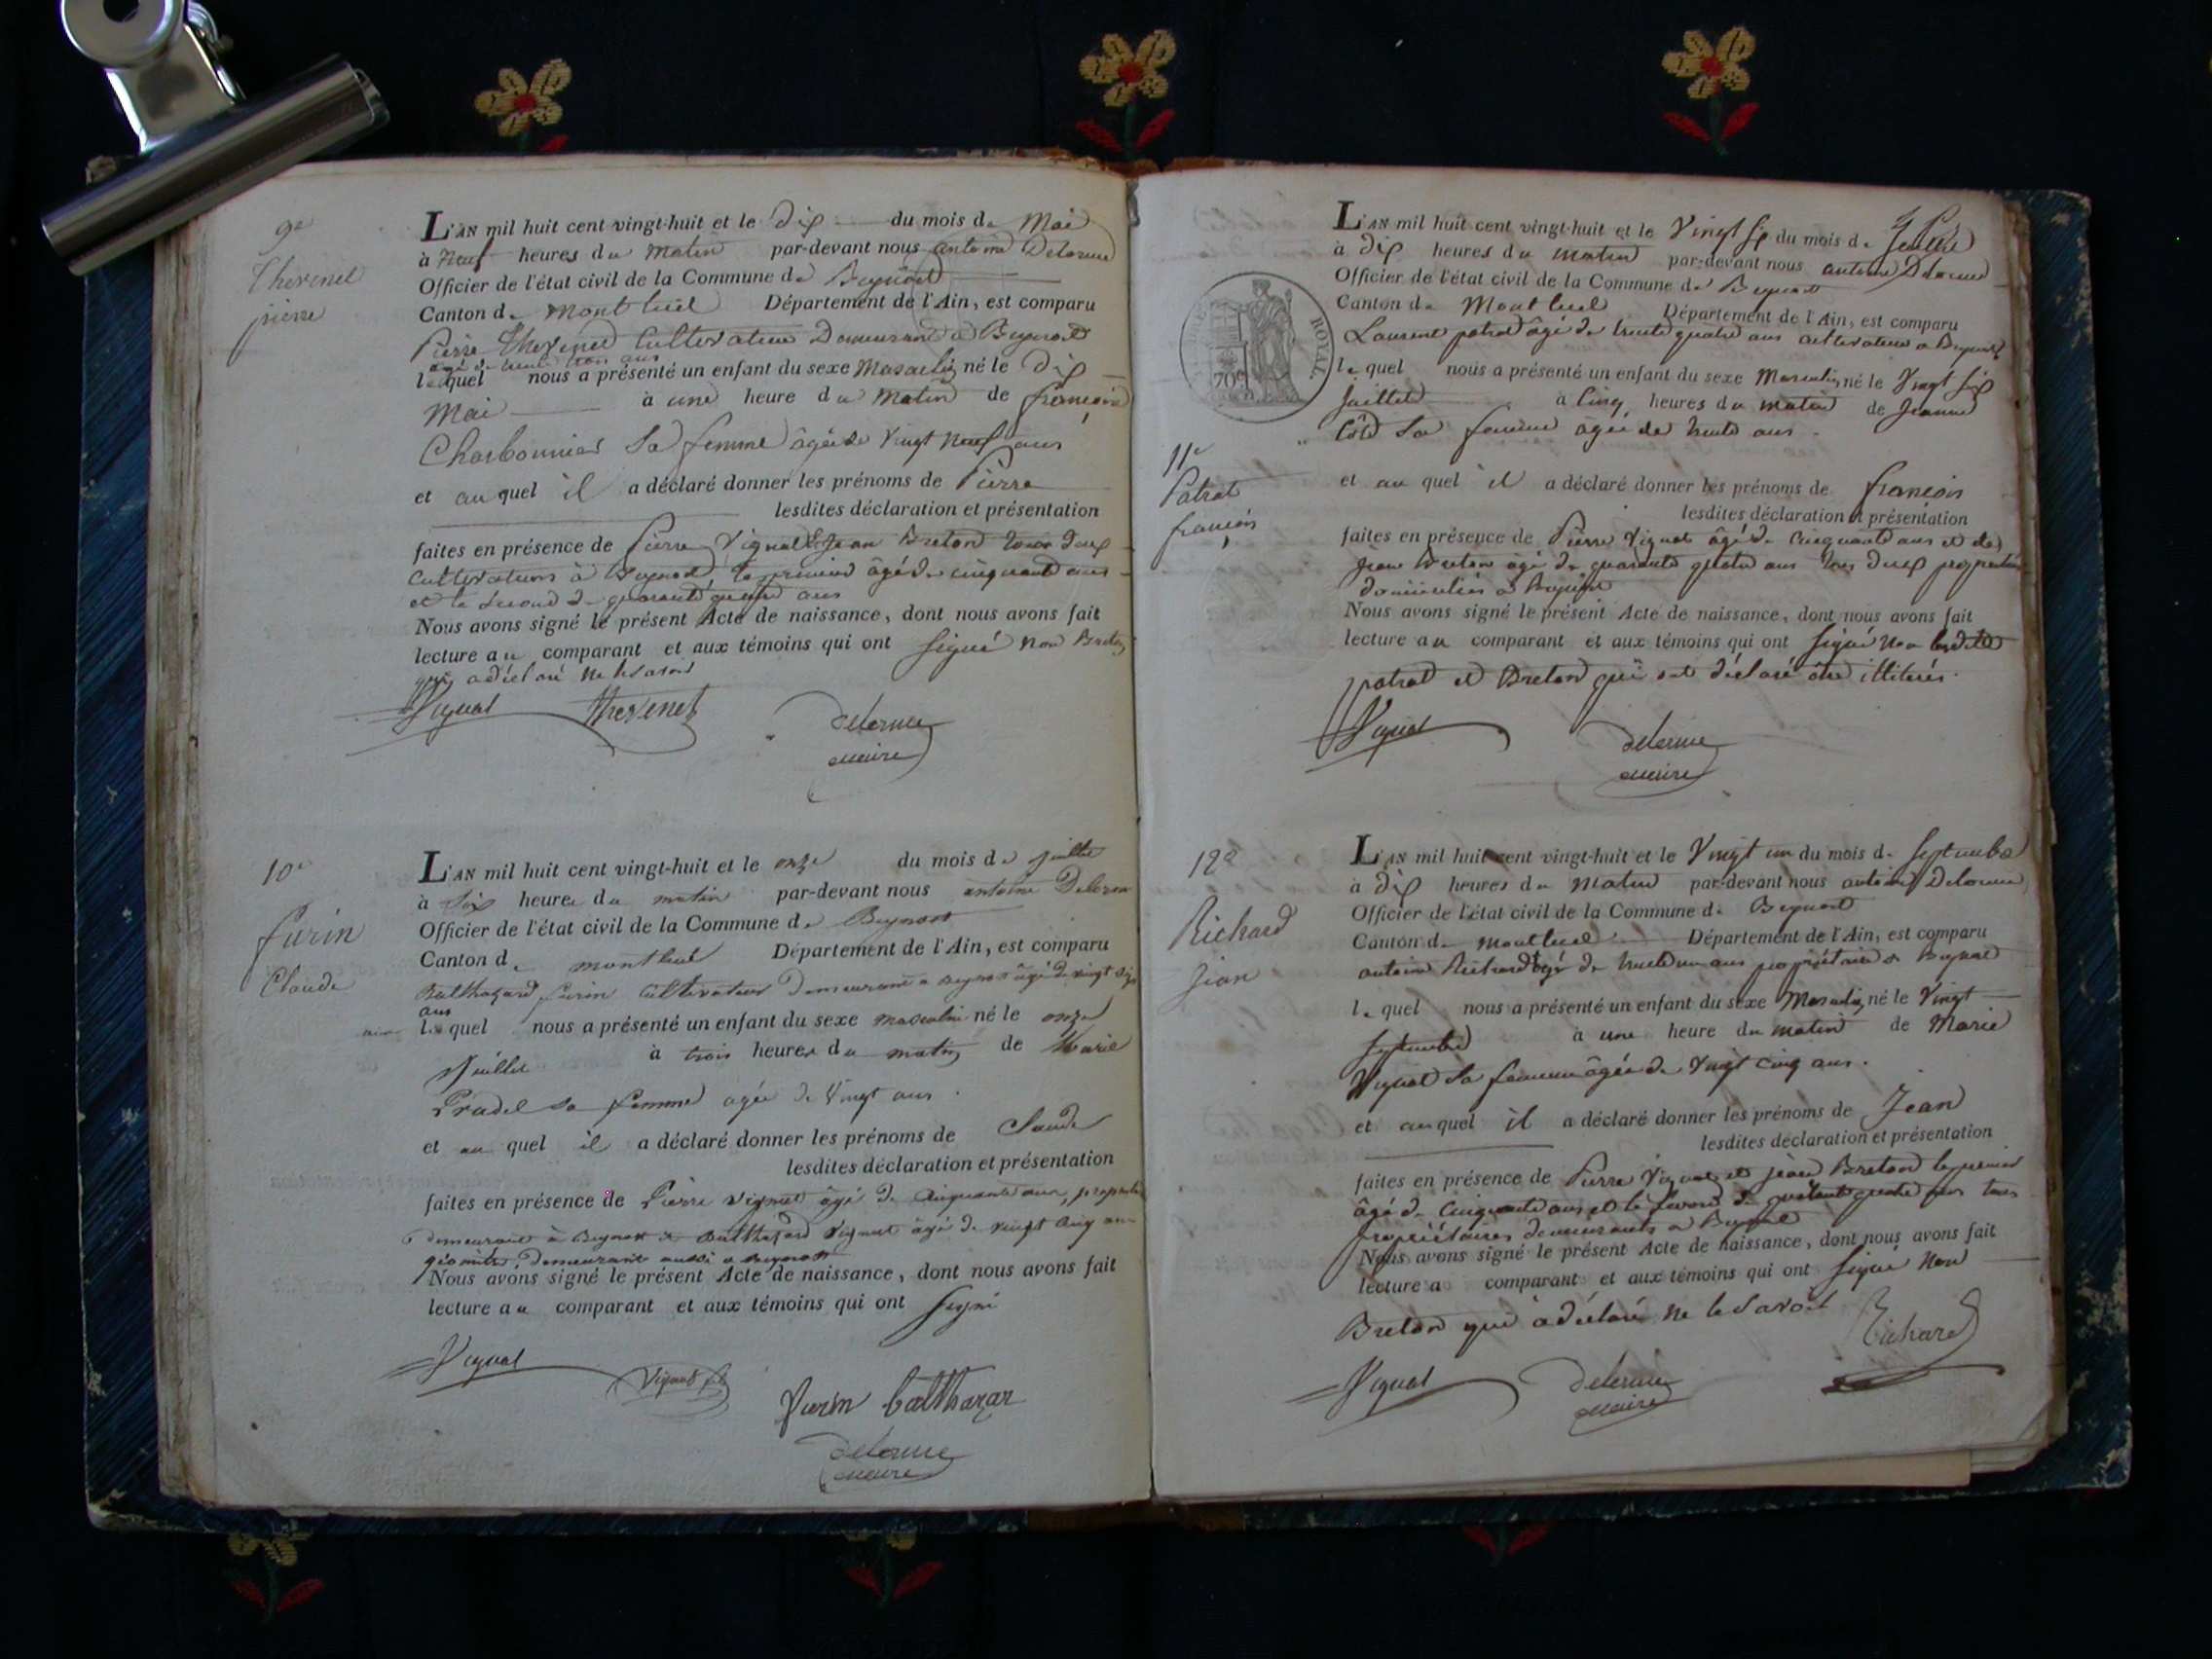 9e
Thevenet
pierre
L'AN mil huit cent vingt-huit et le dix du mois de Mai
à neuf heures du matin par-devant nous antoine Delorme
Officier de l'état civil de la Commune de Beynost
Canton de Montluel Département de l'Ain, est comparu
Pierre Thevenet Cultivateur Demeurant à Beynost
agé de trente trois ans
lequel nous a présenté un enfant du sexe Masculin né le Dix
Mai à une heure du Matin de françoise
Charbonnier Sa femme âgée de Vingt neuf ans
et auquel il a déclaré donner les prénoms de Pierre
lesdites déclaration et présentation
faites en présence de Pierre Vignat & Jean Breton tous deux
Cultivateurs à Beynost, le premier âgé de cinquante ans
et le second de quarante quatre ans
Nous avons signé le présent Acte de naissance, dont nous avons fait
lecture au comparant et aux témoins qui ont signé non Breton
qui a déclaré ne le savoir
Vignat Thevenet delorme
maire
10e
furin
Claude
L'AN mil huit cent vingt-huit et le onze du mois de juillet
à six heures du matin par-devant nous antoine Delorme
Officier de l'état civil de la Commune de Beynost
Canton de montluel Département de l'Ain, est comparu
Balthazard furin Cultivateur Demeurant a Beynost âgé de vingt six
ans
lequel nous a présenté un enfant du sexe masculin né le onze
Juillet à trois heures du matin de Marie
Pradel sa femme agée de Vingt ans
et au quel il a déclaré donner les prénoms de Claude
lesdites déclaration et présentation
faites en présence de Pierre Vignat âgé de Cinquante ans, propriétaire
demeurant à Beynost & Balthazard Vignat âgé de vingt cinq ans
géomètre, Demeurant aussi a Beynost
Nous avons signé le présent Acte de naissance, dont nous avons fait
lecture au comparant et aux témoins qui ont signé
Vignat Vignat fils furin balthazar
delorme
maire
ROYAL.
70c
11e
Patrat
françois
L'AN mil huit cent vingt-huit et le Vingt six du mois de Juillet
à dix heures du matin par-devant nous antoine Delorme
Officier de l'état civil de la Commune de Beynost
Canton de Montluel Département de l'Ain, est comparu
Laurent patrat âgé de trente quatre ans cultivateur a Beynost
lequel nous a présenté un enfant du sexe Masculin né le Vingt six
Juillet à Cinq heures du matin de Jeanne
Sa femme âgée de trente ans
et au quel il a déclaré donner les prénoms de françois
lesdites déclaration et présentation
faites en présence de Pierre Vignat âgé de Cinquante ans et de
Jean Breton âgé de quarante quatre ans tous deux propriétaires
domiciliés à Beynost
Nous avons signé le présent Acte de naissance, dont nous avons fait
lecture au comparant et aux témoins qui ont signé non lesdits
patrat et Breton qui ont déclaré être illitérés
Vignat delorme
maire
12e
Richard
Jean
L'AN mil huit cent vingt-huit et le Vingt un du mois de Septembre
à dix heures du Matin par-devant nous antoine Delorme
Officier de l'état civil de la Commune de Beynost
Canton de Montluel Département de l'Ain, est comparu
antoine Richard âgé de trente un ans propriétaire à Beynost
lequel nous a présenté un enfant du sexe Masculin né le Vingt
Septembre à une heure du matin de Marie
Vignat Sa femme âgée de Vingt Cinq ans.
et auquel il a déclaré donner les prénoms de Jean
lesdites déclaration et présentation
faites en présence de Pierre Vignat et jean Breton le premier
âgé de Cinquante ans et le second de quarante quatre ans tous
propriétaires demeurants a Beynost
Nous avons signé le présent Acte de naissance, dont nous avons fait
lecture a comparant et aux témoins qui ont signé Non
Breton qui à déclaré Ne le Savoir Richard
Vignat delorme
maire